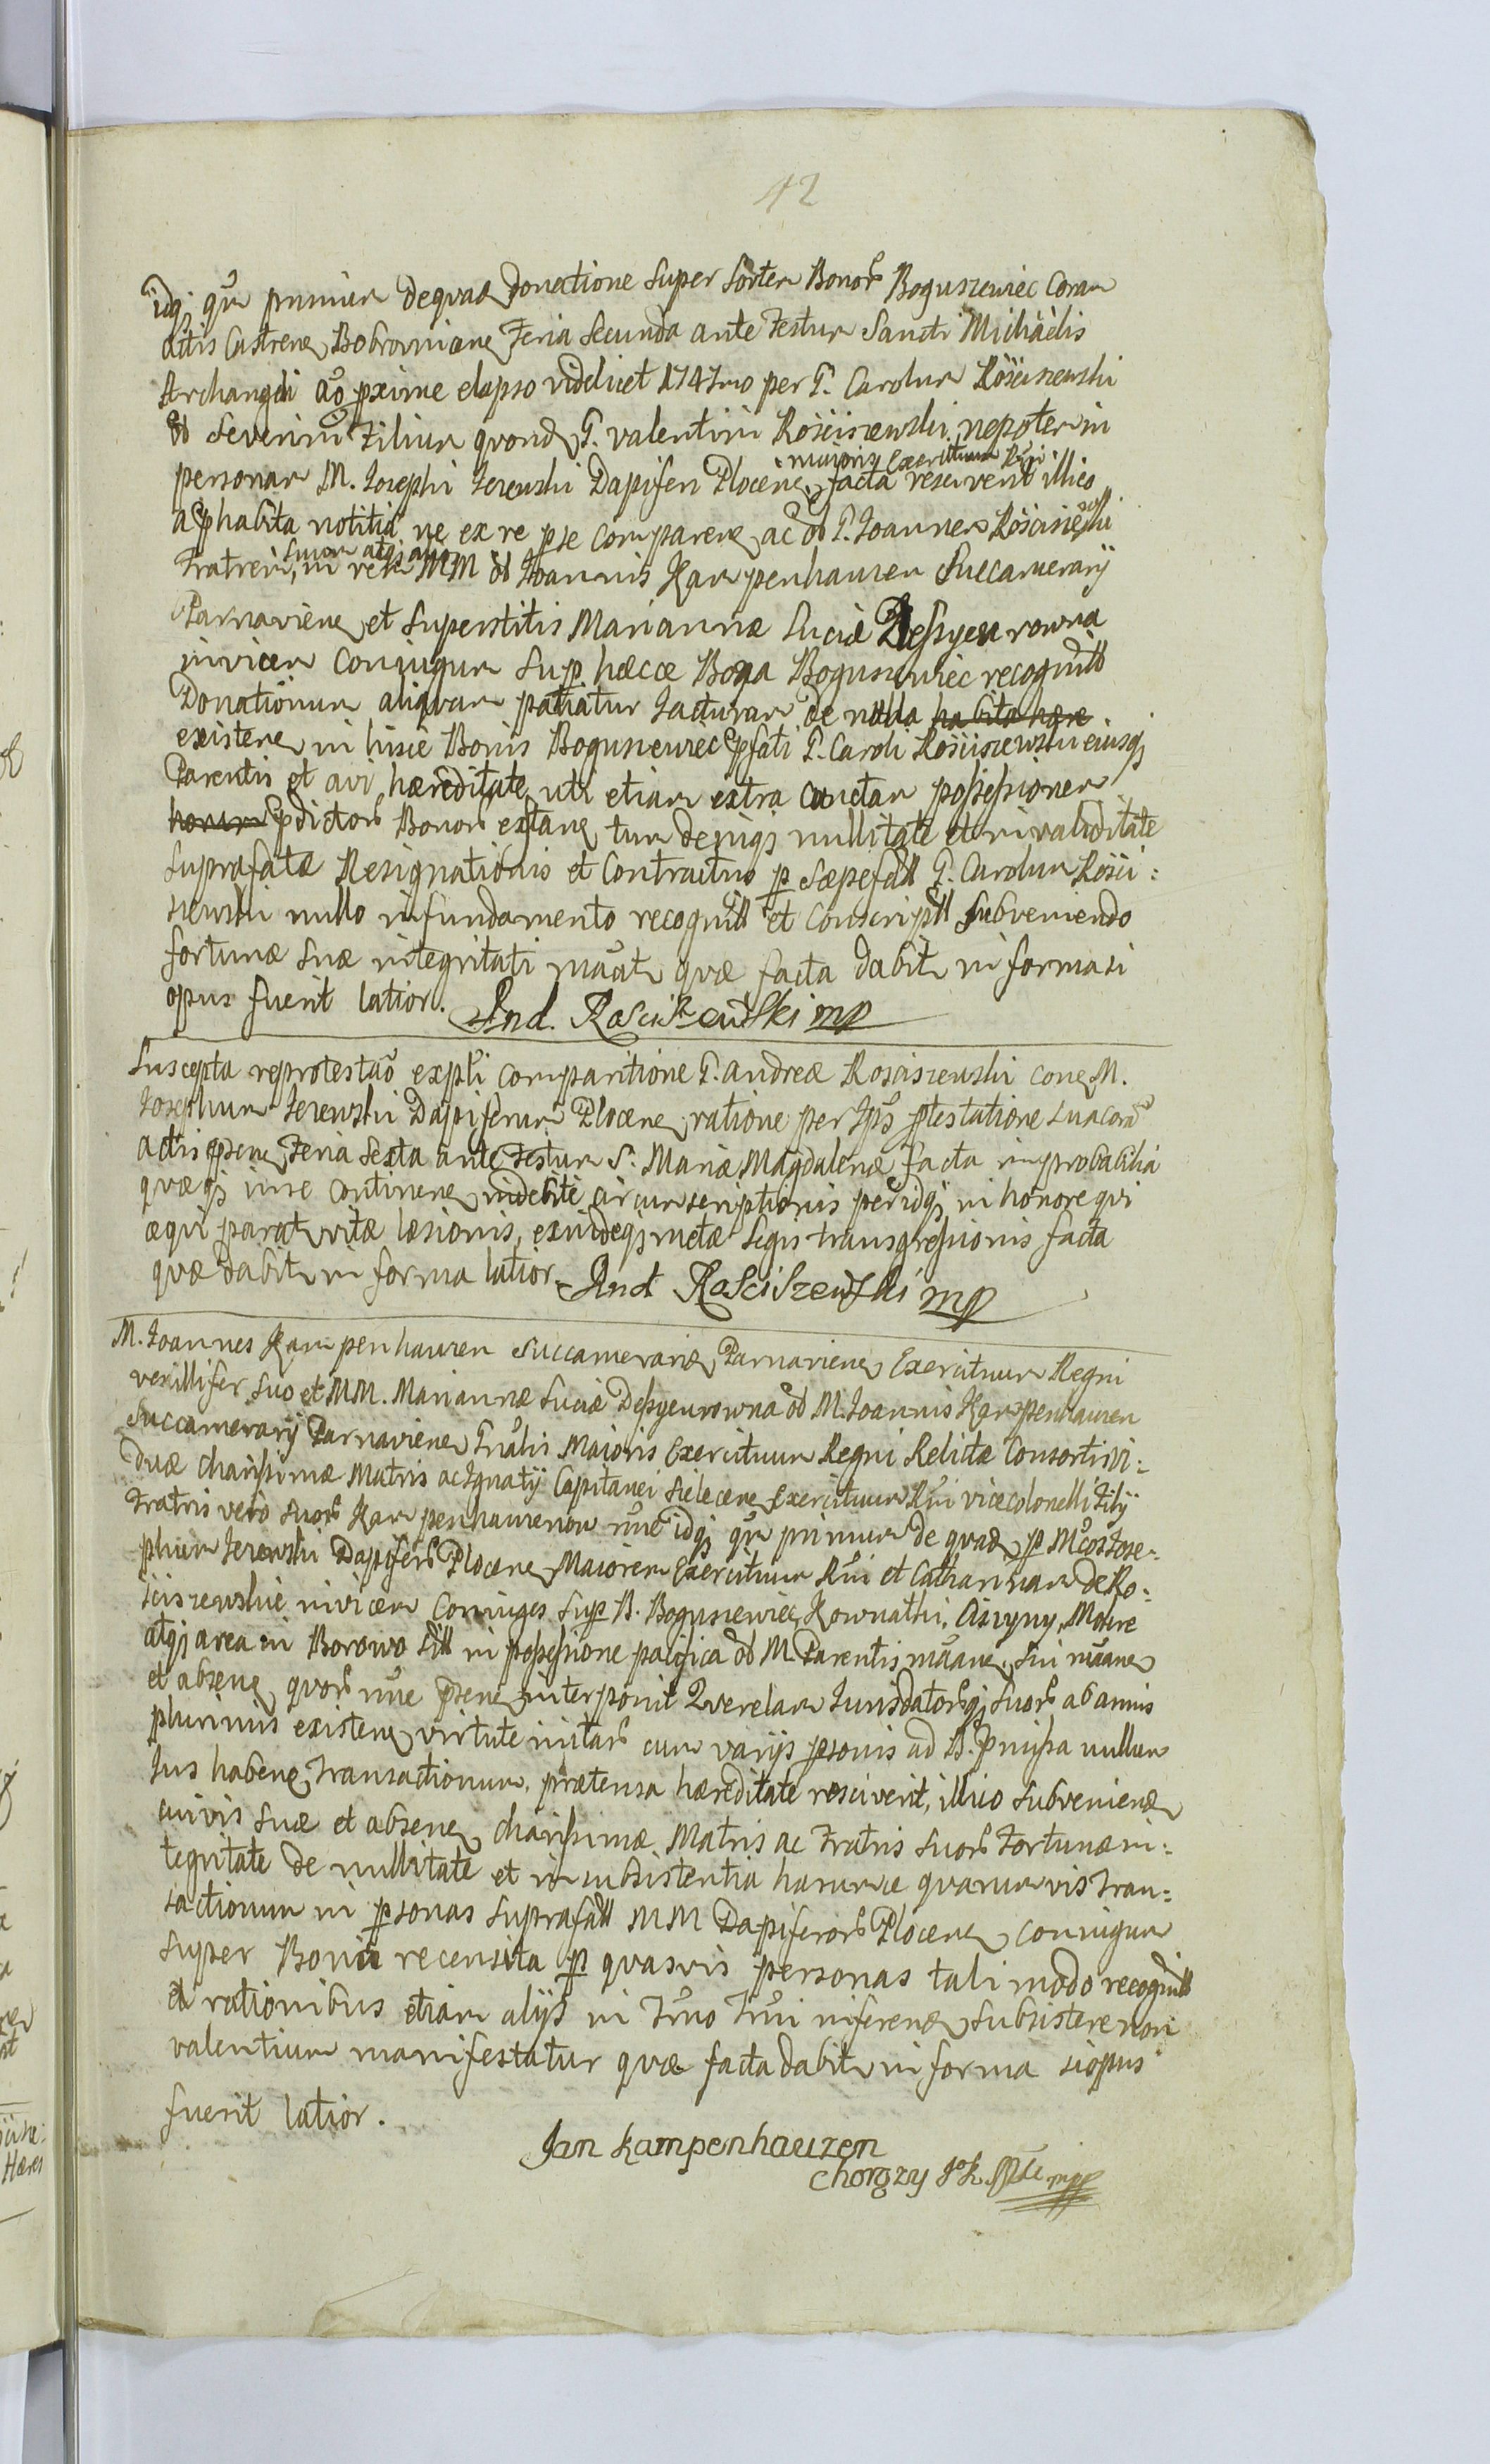 42
idq; qm primum de quadam Donatione super Sortem Bonorum Boguszewiec Coram
actis Castrens. Bobrownicens. Feria Secunda ante Festum Sancti Michaelis
Archangeli aō pxime elapso videlicet 1747mo per G. Carolum Rościszewski
ol Severini Filium quond. G. Valentini Rościszewski nepotem in
maioris Exercituum Rni
personam M. Josephi Jezewski Dapiferi Plocens. facta resciverit illico
aephabita notitia ne ex re pse comparens. ac ol G. Joannem Rościszewski
suum atq;
Fratrem, in rem MM ol Joannis Kampenhauzen Succamerarij
Parnaviens. et Superstitis Mariannæ Luciæ Deßyeurowna
invicem Conjugum Sup hæcce Bona Boguszewiec recognitt
Donationum aliquam patiatur Jacturam de nulla habita hære
existens. in hisce Bonis Boguszewiec pfati G. Caroli Rościszewski eiusq;
Parentis et avi hæreditate, uti etiam extra cunctam poßeßionem
horum pdictorum Bonorum extans. tum deniq; nullitate et invaliditate
Suprafatæ Resignationis et Contractus p sæpefatt G. Carolum Rości:
szewski nullo in fundamento recognitt et Conscriptt Subveniendo
fortunæ Suæ integritati māat quæ facta dabit in forma si
opus fuerit latior. And. Rosciszewski mp
Suscepta reprotestaō expli Comparitione G. Andreæ Rosciszewski cone M.
Josephum Jezewski Dapiferum Plocens. ratione per Ips ptestatione sua corā
actis psens. Feria Sexta ante Festum S. Mariæ Magdalenæ facta improbabilia
quæq; in se Continens. indebite circumscriptionis peridq; in honore qui
æqui parat vitæ læsionis, exindeq; metæ Legis transgreßionis facta
quæ dabit in forma latior. And Rosciszewski mp
M. Joannes Kampenhauzen Succamerarid. Parnaviens. Exercituum Regni
vexillifer Suo et MM. Mariannæ Luciæ Deßyeurowna ol M. Joannis Kampenhauzen
Succamerarij Parnaviens. Gnalis Maioris Exercituum Regni Relictæ Consortis Vi:
duæ Charißimæ Matris ac Ignatij Capitanei Sielecens. Exercituum Rni vicecolonelli Filij
Fratris vero Suorum Kampenhauzenow nōe idq; qm primum de quadam p Mcos Jose:
phum Jezewski Dapiferum Plocens. Maiorem Exercituum Rni et Catharinam de Ro:
sciszewskie invicem Conjuges Sup B. Boguszewiec, Kownatki, Mokre
atq; area in Borowo sitt in poßeßione pacifica ol M. Parentis māans. sui māans.
et absens. quorum nōe psens. interponit Querelam Jurisdatorumq; Suorum ab annis
plurimis existens. virtute initarum cum varijs psonis ad B. pmißa nullum
Jus habens. Transactionum, prætensa hæreditate resciverit, illico Subveniend.
cuivis Suæ et absens. Charißimæ Matris ac Fratris Suorum Fortunæ in:
tegritate de nullitate et insubsistentia harumce quarumvis Tran:
sactionum in psonas Suprafatt MM Dapiferorum Plocens. Conjugum
Super Bonis recensita p quasvis personas tali modo recognitt
et rationibus etiam alijs in Trno Trni inferend. Subsistere non
valentium manifestatur quæ facta dabit in forma si opus
fuerit latior.
Jan Kampenhauzen
Chorąży J K mp